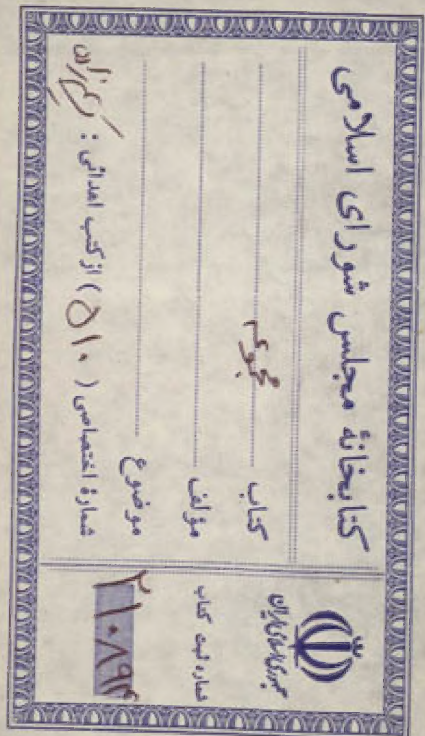 کتابخانهٔ مجلس شورای اسلامی
کتاب مجموعه
مؤلف
موضوع
شمارهٔ اختصاصی ( ۵۱۰ ) از کتب اهدائی :
جمهوری اسلامی ایران
شماره ثبت کتاب
۲۱۰۸۹۴